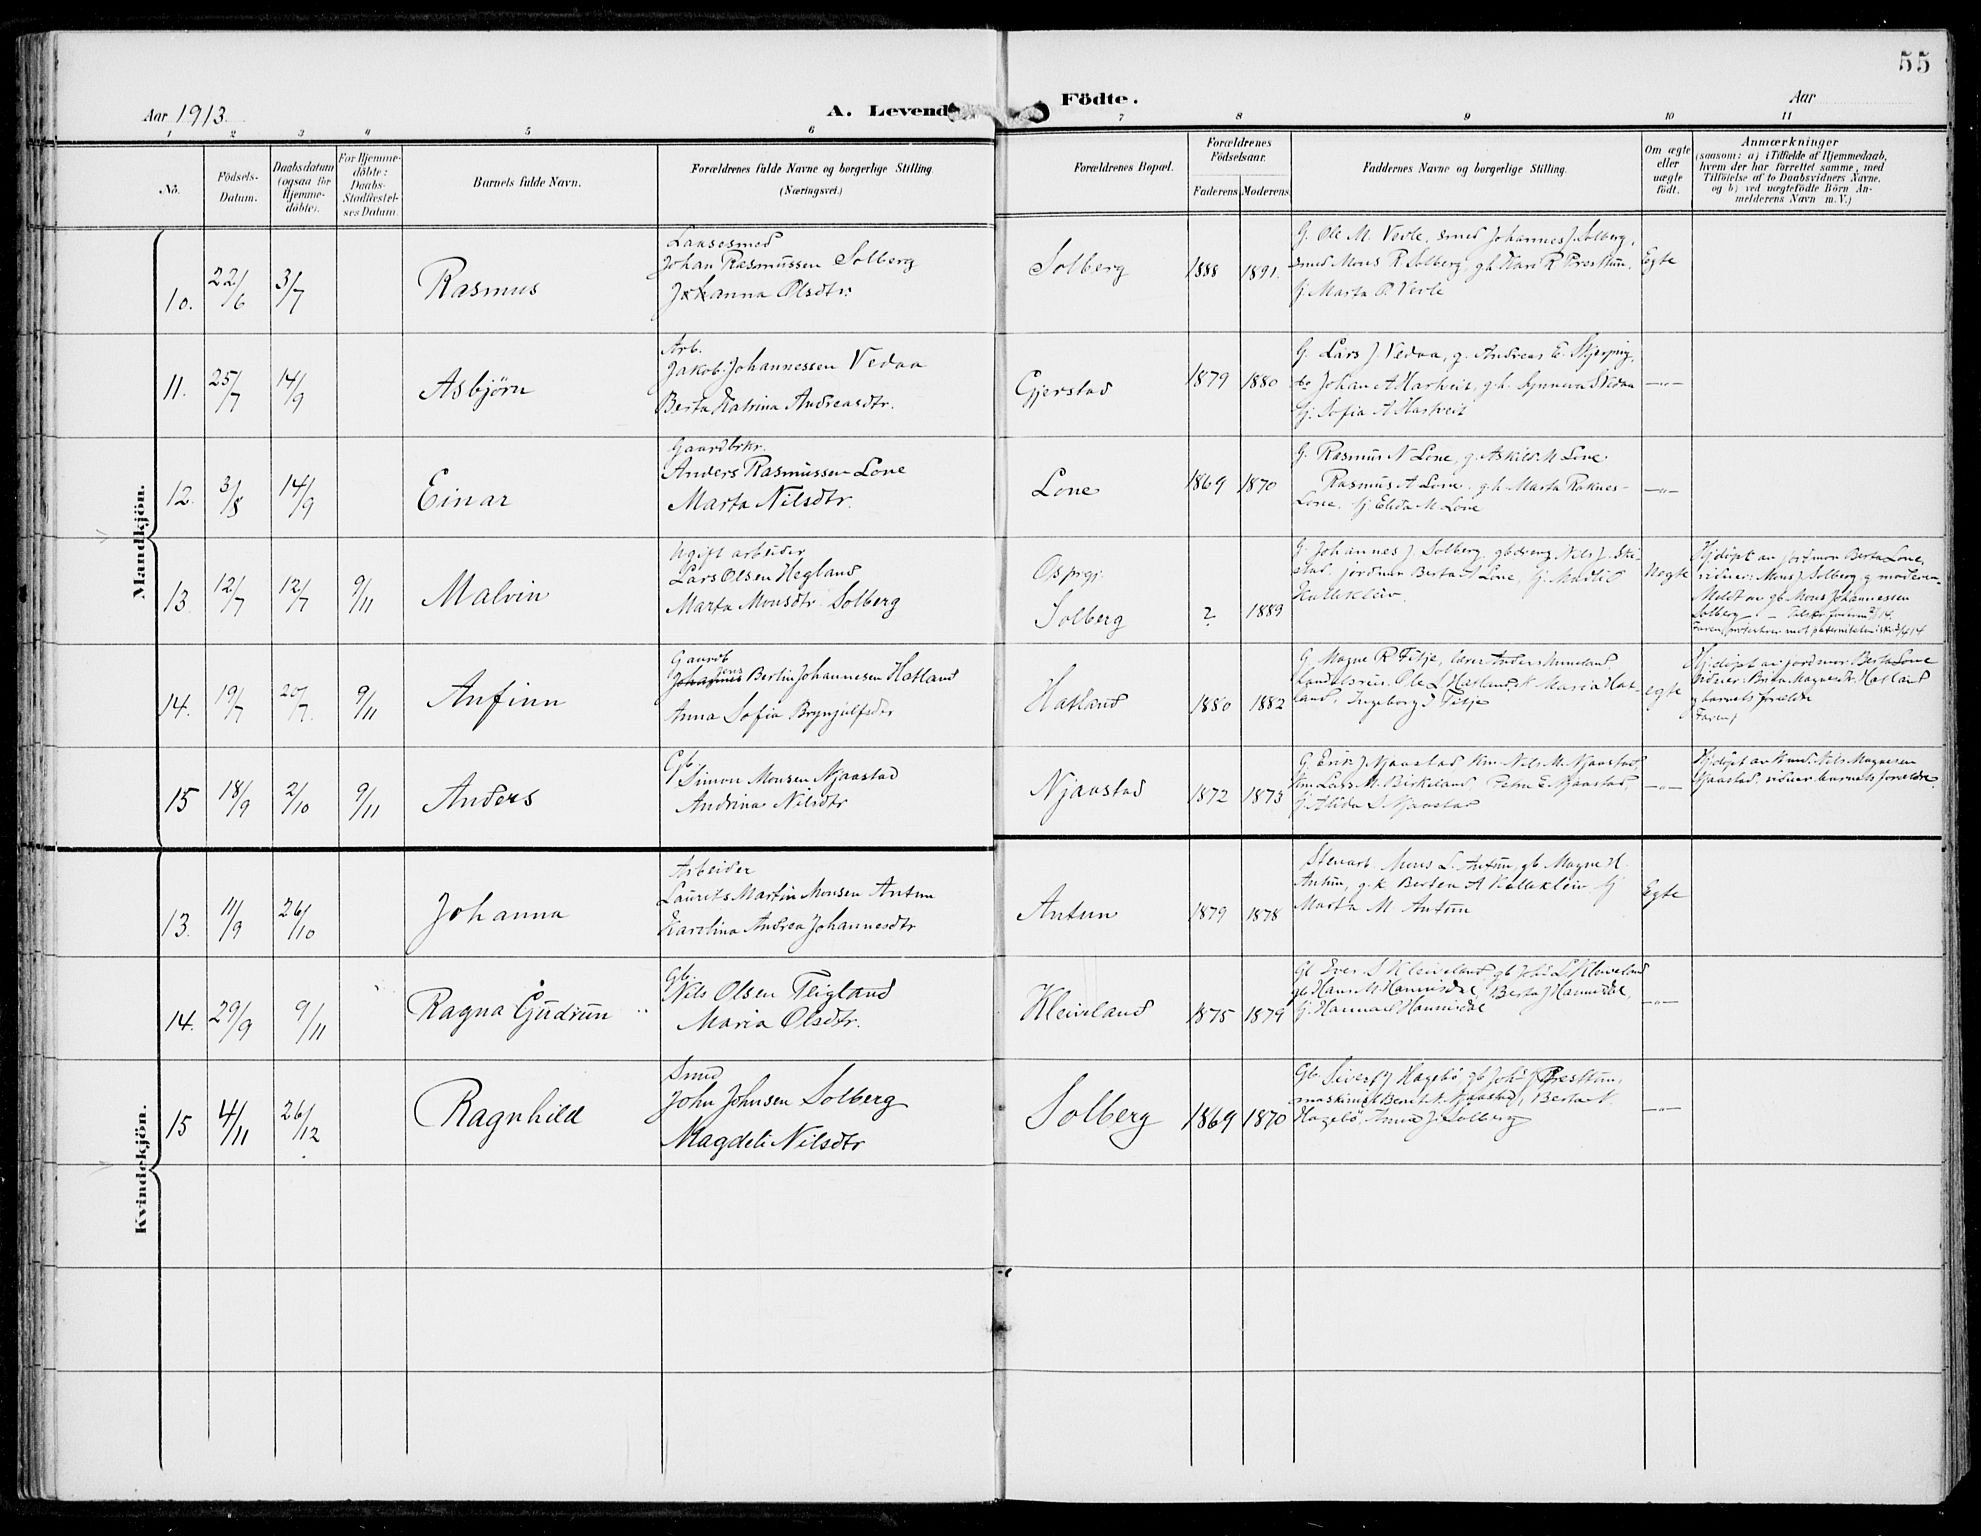 55
Aar 1913.
A. Levende Födte.
Aar
1 2 3 4 5 6 7 8 9 10 11
No.
Födsels-Datum.
Daabsdatum (ogsaa for Hjemme-döbte).
For Hjemme-döbte: Daabs-Stadfæstel-ses Datum.
Barnets fulde Navn.
Forældrenes fulde Navne og borgerlige Stilling (Næringsvei.)
Forældrenes Bopæl.
Forældrenes Födselsaar.
Faderens Moderens
Faddernes Navne og borgerlige Stilling.
Om ægte eller uægte födt.
Anmærkninger
(saasom: a) i Tilfælde af Hjemmedaab,
hvem der har forrettet samme, med
Tilföielse af to Daabsvidners Navne,
og b) ved uægtefödte Börn An-
melderens Navn m. V.)
Mandkjön.
10. 22/6 3/7 Rasmus
Laasesmed
Johan Rasmussen Solberg
Johanna Olsdtr.
Solberg 1888 1891.
G. Ole M. Vevle, smed Johannes J. Solberg,
smed Mons R Solberg, gh. Kari R Presttun,
Marta P. Vevle
Egte
11. 25/7 14/9 Asbjörn
Arb.
Jakob Johannessen Vedaa
Berta Katrina Andreasdtr.
Gjerstad 1879 1880
G. Lars J Vedaa, g. Andreas E.
do Johan A Hartveit, g.h. Synneva
Sofia A Hartveit
—"—
12. 3/8 14/9 Einar
Gaardbrkr.
Anders Rasmussen Lone
Marta Nilsdtr.
Lone 1869 1870
G. Rasmus N Lone, g. Askild M Lone
Rasmus A Lone, gh Marta Raknes-
Lone, Elida M Lone
—"—
13. 12/7 12/7 9/11 Malvin
Ugift arbeider
Lars Olsen Hegland
Marta Monsdtr. Solberg
Os prgj.
Solberg ? 1889
G. Johannes J. Solberg, Nils J.
jordmor Berta A Lone,
Hatlekleiv
Uegte
Hjdöpt av jordmor Berta Lone,
vidner: Mons J Solberg g moderen
Meldt av gb. Mons Johannessen
Solberg
14. 19/7 20/7 9/11 Anfinn
Gaardb
Jens Berlin Johannesen Hatland
Anna Sofia Brynjulfsdtr
Hatland 1880 1882
G Magne R Fitje, lærer Anders
Ole L Hatland, K Maria Hat-
land, Ingeborg J Fitje
egte
Hjdöpt av jordmor Berta Lone
Vidner: Brita Magnesdtr Hatland
g barnets forældre
Faren,
15 18/9 2/10 9/11 Anders
Gb
Simon Monsen Njaastad
Andrina Nilsdtr
Njaastad 1872 1873
G Erik J Njaastad Nils M. Njaastad
Lars M. Birkeland, Petra E. Njaastad,
Alida S Njaastad
—"—
Hjdöpt av Nils Magnesen
Njaastad, vidner barnets forældre.
Kvindekjön.
13. 11/9 26/10 Johanna
Arbeider
Laurits Martin Monsen Antun
Karolina Andrea Johannesdtr
Antun 1879 1878
Mons L. Antun, gb Magne H.
Antun, g.k Berta A Hatlekleiv
Marta M Antun
Egte
14. 29/9 9/11 Ragna Gudrun
Gb.
Nils Olsen Teigland
Maria Olsdtr.
Kleiveland 1875 1879
Gb Iver S Kleiveland, gb Joh. L Kleiveland
gb Hans M Hannisdal, Berta J Hannisdal,
Hanna Hannisdal
—"—
15 4/11 26/12 Ragnhild
Smed
John Johnsen Solberg
Magdeli Nilsdtr
Solberg 1869 1870
Gb. Sivert J Hagebö gb Joh. J Presttun,
maskinist Berit N. Njaastad, Berta N.
Hagebö, Anna J. Solberg
—"—